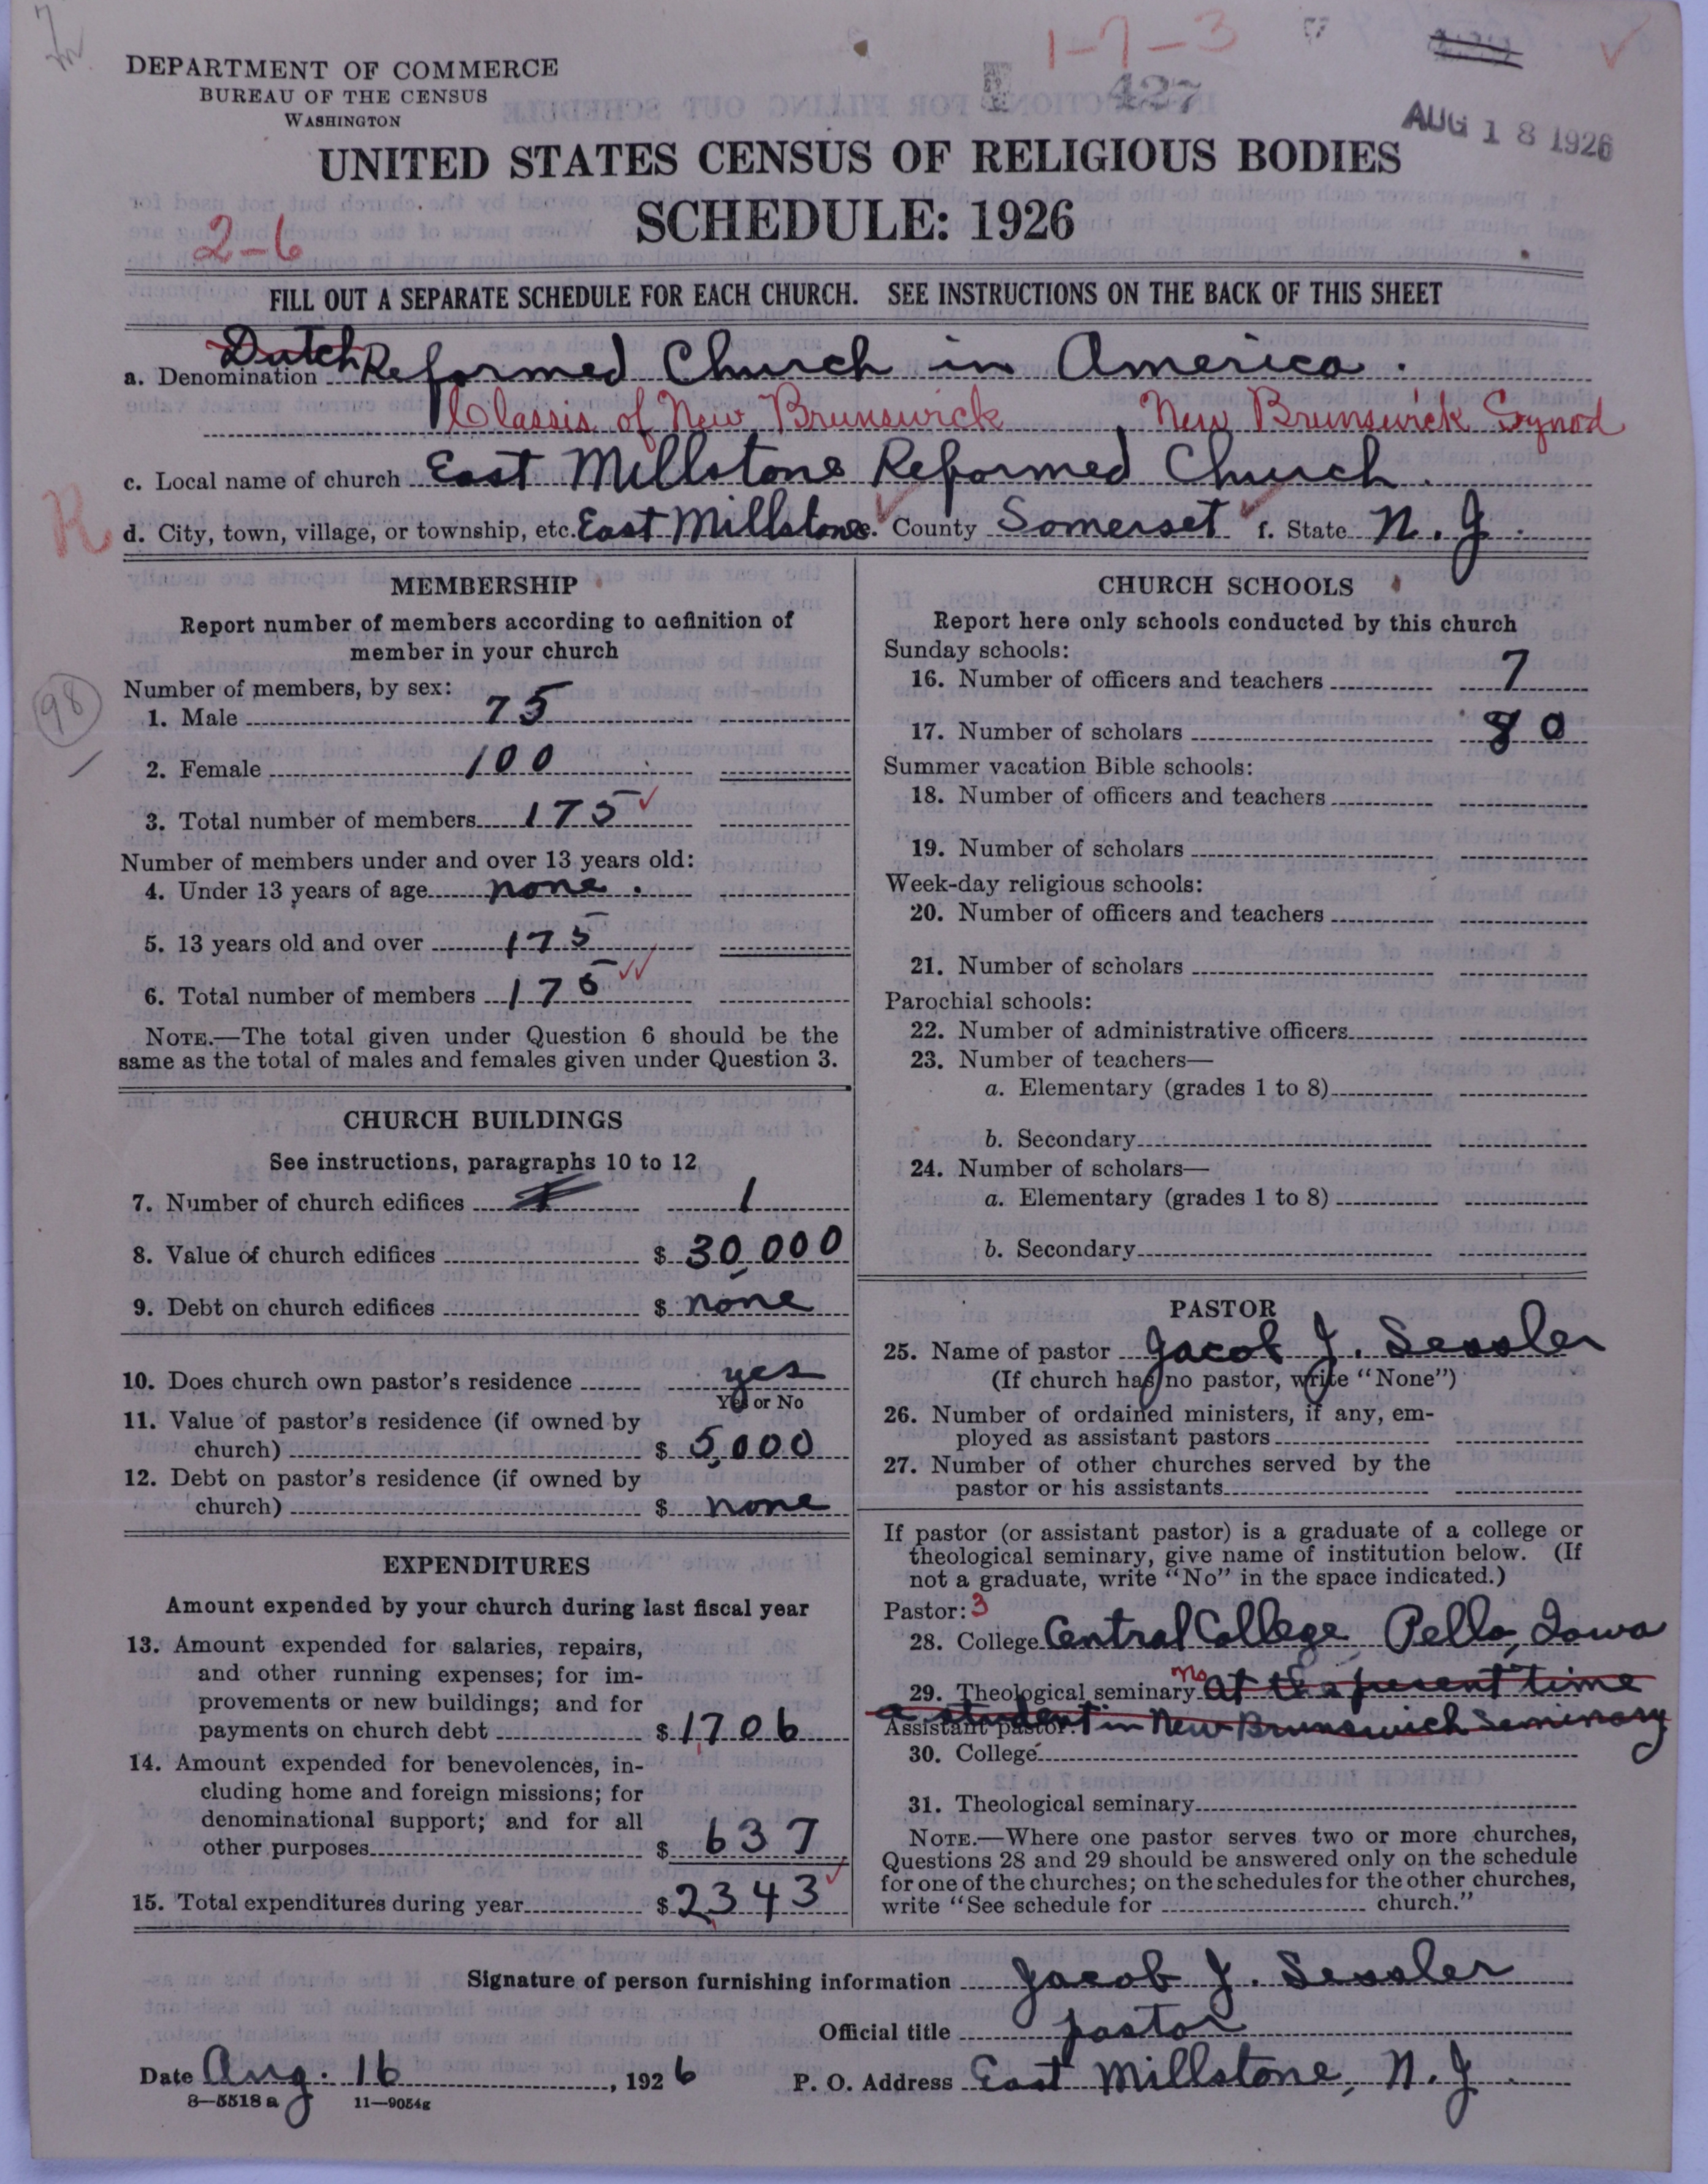 1-7-3
427
DEPARTMENT OF COMMERCE
BUREAU OF THE CENSUS
WASHINGTON
AUG 18 1926
UNITED STATES CENSUS OF RELIGIOUS BODIES
SCHEDULE: 1926
2-6
FILL OUT A SEPARATE SCHEDULE FOR EACH CHURCH. SEE INSTRUCTIONS ON THE BACK OF THIS SHEET
a. Denomination Dutch Reformed Church in America.
Classis of New Brunswick, New Brunswick Synod
c. Local name of church East Millstone Reformed Church.
R
d. City, town, village, or township, etc. East Millstone e. County Somerset f. State N. J.
MEMBERSHIP
Report number of members according to definition of
member in your church
Number of members, by sex:
98
1. Male 75
2. Female 100
3. Total number of members 175
Number of members under and over 13 years old:
4. Under 13 years of age none.
5. 13 years old and over 175
6. Total number of members 175
NOTE.—The total given under Question 6 should be the
same as the total of males and females given under Question 3.
CHURCH BUILDINGS
See instructions, paragraphs 10 to 12
7. Number of church edifices 1 1
8. Value of church edifices $ 30,000
9. Debt on church edifices $ none
10. Does church own pastor's residence yes
Yes or No
11. Value of pastor's residence (if owned by
church) $ 5,000
12. Debt on pastor's residence (if owned by
church) $ none
EXPENDITURES
Amount expended by your church during last fiscal year
13. Amount expended for salaries, repairs,
and other running expenses; for im-
provements or new buildings; and for
payments on church debt $ 1,706
14. Amount expended for benevolences, in-
cluding home and foreign missions; for
denominational support; and for all
other purposes $ 637
15. Total expenditures during year $ 2,343
CHURCH SCHOOLS
Report here only schools conducted by this church
Sunday schools:
16. Number of officers and teachers 7
17. Number of scholars 80
Summer vacation Bible schools:
18. Number of officers and teachers
19. Number of scholars
Week-day religious schools:
20. Number of officers and teachers
21. Number of scholars
Parochial schools:
22. Number of administrative officers
23. Number of teachers—
a. Elementary (grades 1 to 8)
b. Secondary
24. Number of scholars—
a. Elementary (grades 1 to 8)
b. Secondary
PASTOR
25. Name of pastor Jacob J. Sessler
(If church has no pastor, write "None")
26. Number of ordained ministers, if any, em-
ployed as assistant pastors
27. Number of other churches served by the
pastor or his assistants
If pastor (or assistant pastor) is a graduate of a college or
theological seminary, give name of institution below. (If
not a graduate, write "No" in the space indicated.)
Pastor: 3
28. College Central College, Pella, Iowa
29. Theological seminary no at the present time
a student in New Brunswick Seminary
Assistant pastor:
30. College
31. Theological seminary
NOTE.—Where one pastor serves two or more churches,
Questions 28 and 29 should be answered only on the schedule
for one of the churches; on the schedules for the other churches,
write "See schedule for church."
Signature of person furnishing information Jacob J. Sessler
Official title pastor
Date Aug. 16, 1926 P. O. Address East Millstone, N. J.
8—5518a 11—9054g